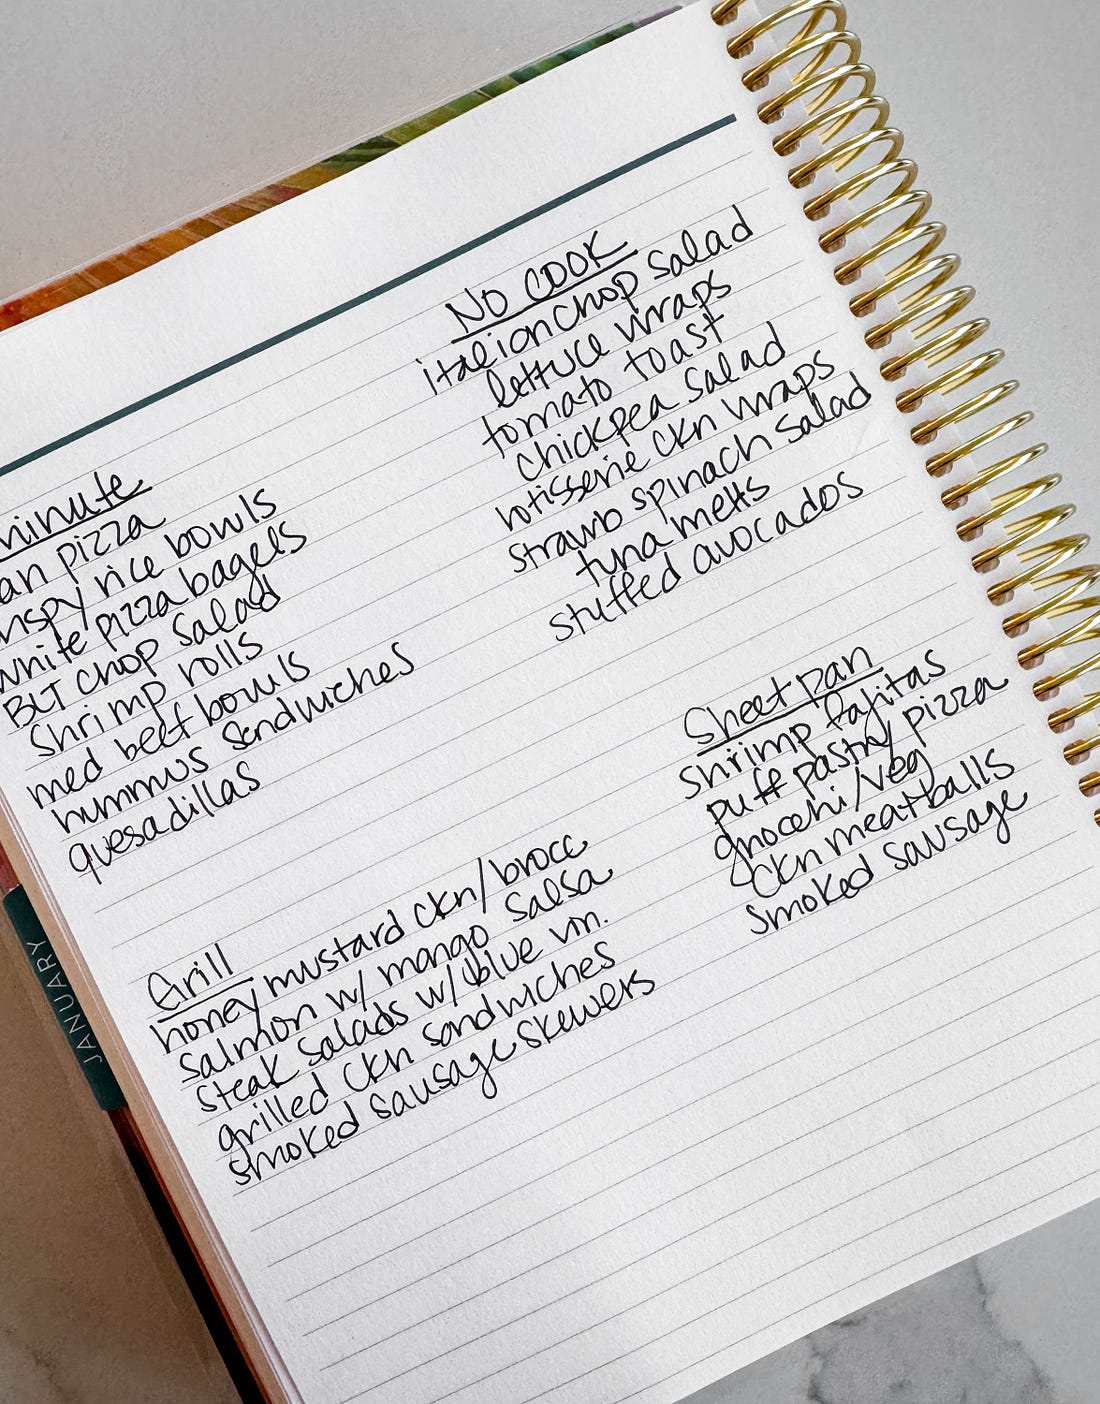 No cook
italian chop salad
lettuce wraps
tomato toast
chickpea salad
rotisserie ckn wraps
strawb spinach salad
tuna melts
stuffed avocados
minute
an pizza
rispy rice bowls
white pizza bagels
BLT chop salad
shrimp rolls
med beef bowls
hummus sandwiches
quesadillas
Sheet pan
shrimp fajitas
puff pastry pizza
gnocchi/veg
ckn meatballs
smoked sausage
Grill
honey mustard ckn/brocc
salmon w/ mango salsa
steak salads w/ blue vin.
grilled ckn sandwiches
smoked sausage skewers
JANUARY